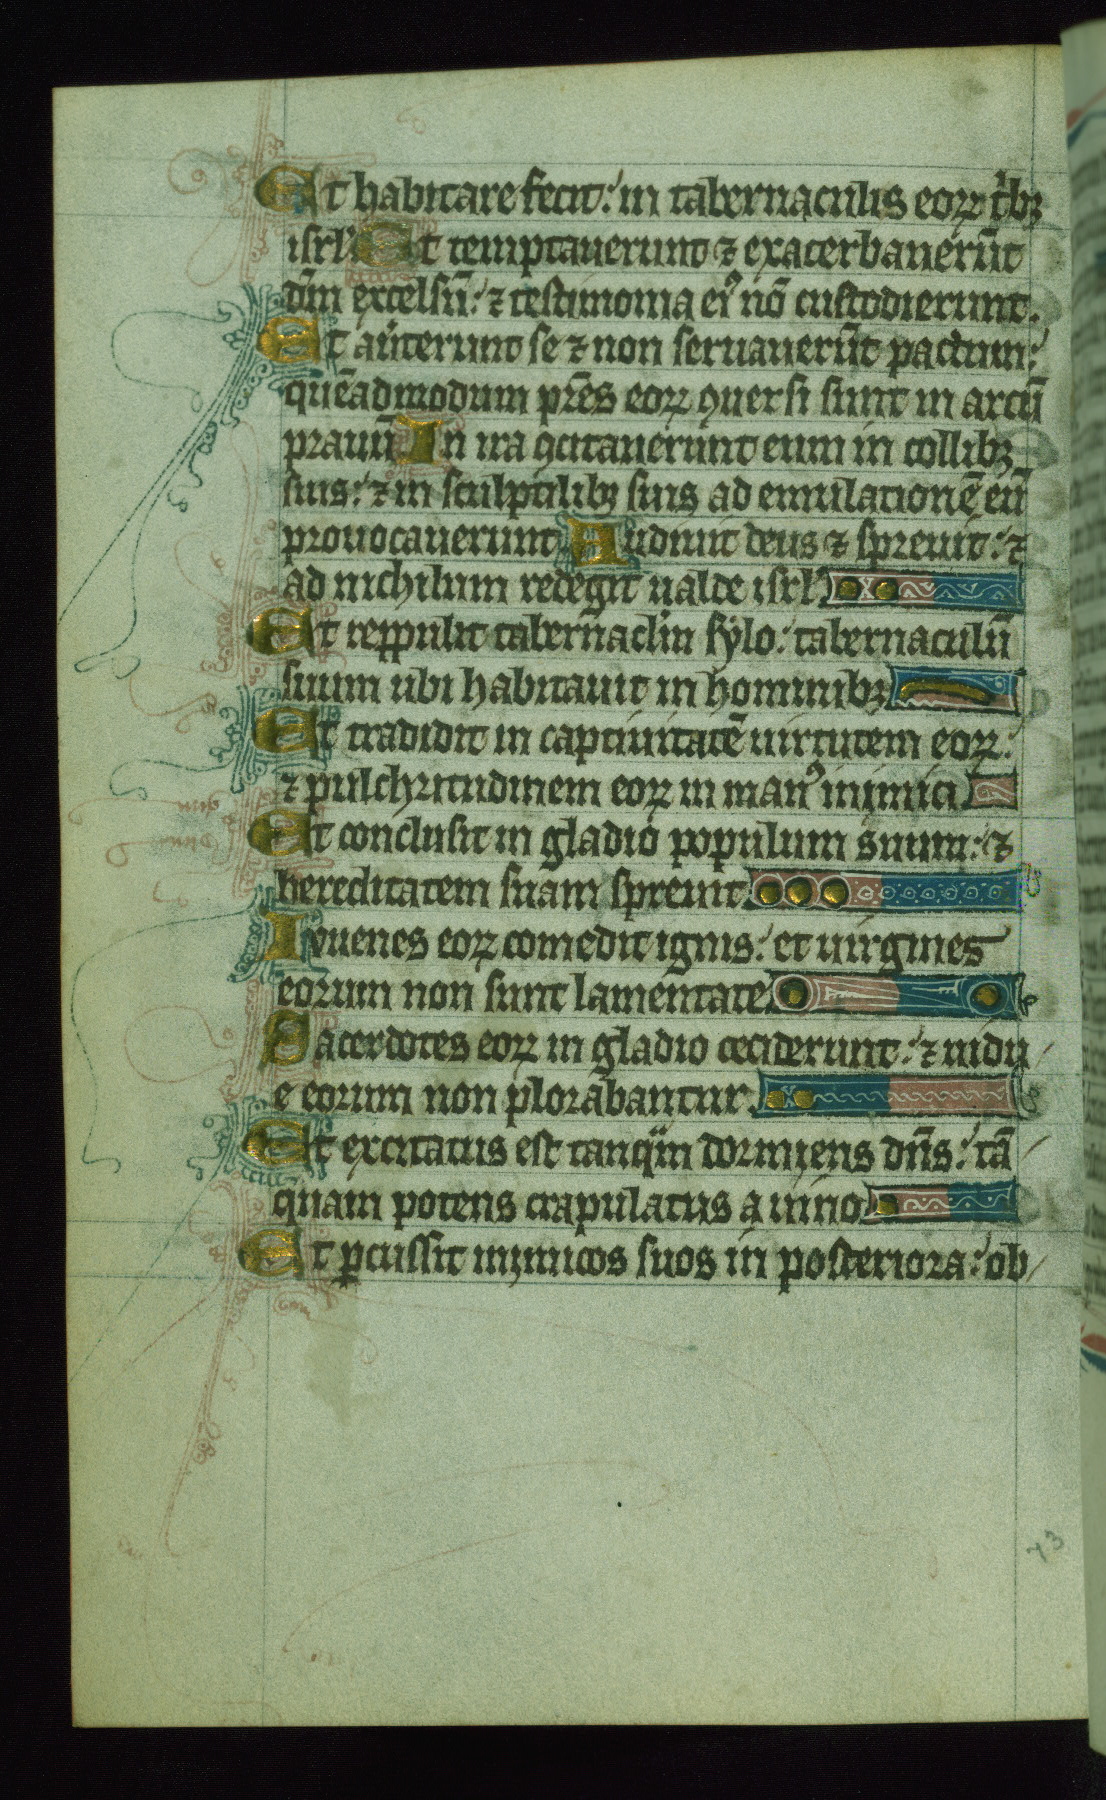 Et habitare fecit: in tabernaculis eoꝝ t'bꝫ
isrl'. Et temptauerunt ⁊ exacerbauerūt
dm̄ excelsū: ⁊ testimonia ei᾿ nō custodierunt.
Et auerterunt se ⁊ non seruauerūt pactum:
quēadmodum pr̄es eoꝝ ꝯuersi sunt in arcū
prauū. In ira ꝯcitauerunt eum in collibꝫ
suis: ⁊ in sculptilibꝫ suis ad emulationē eū
prouocauerunt. Audiuit deus ⁊ spreuit: ⁊
ad nichilum redegit ualde isrl'.
Et reppulit tabernac'lm sylo: tabernaculū
suum ubi habitauit in hominibꝫ.
Et tradidit in captiuitatē uirtutem eoꝝ:
⁊ pulchritudinem eoꝝ in man᾿ inimici.
Et conclusit in gladio populum suum: ⁊
hereditatem suam spreuit.
Iuuenes eoꝝ comedit ignis: et uirgines
eorum non sunt lamentate.
Sacerdotes eoꝝ in gladio ceciderunt: ⁊ uidu
e eorum non plorabantur.
Et excitatus est tanqͣm dormiens dn̄s: tā
quam potens crapulatus a uino.
Et ꝑcussit inimicos suos in posteriora: ob
73